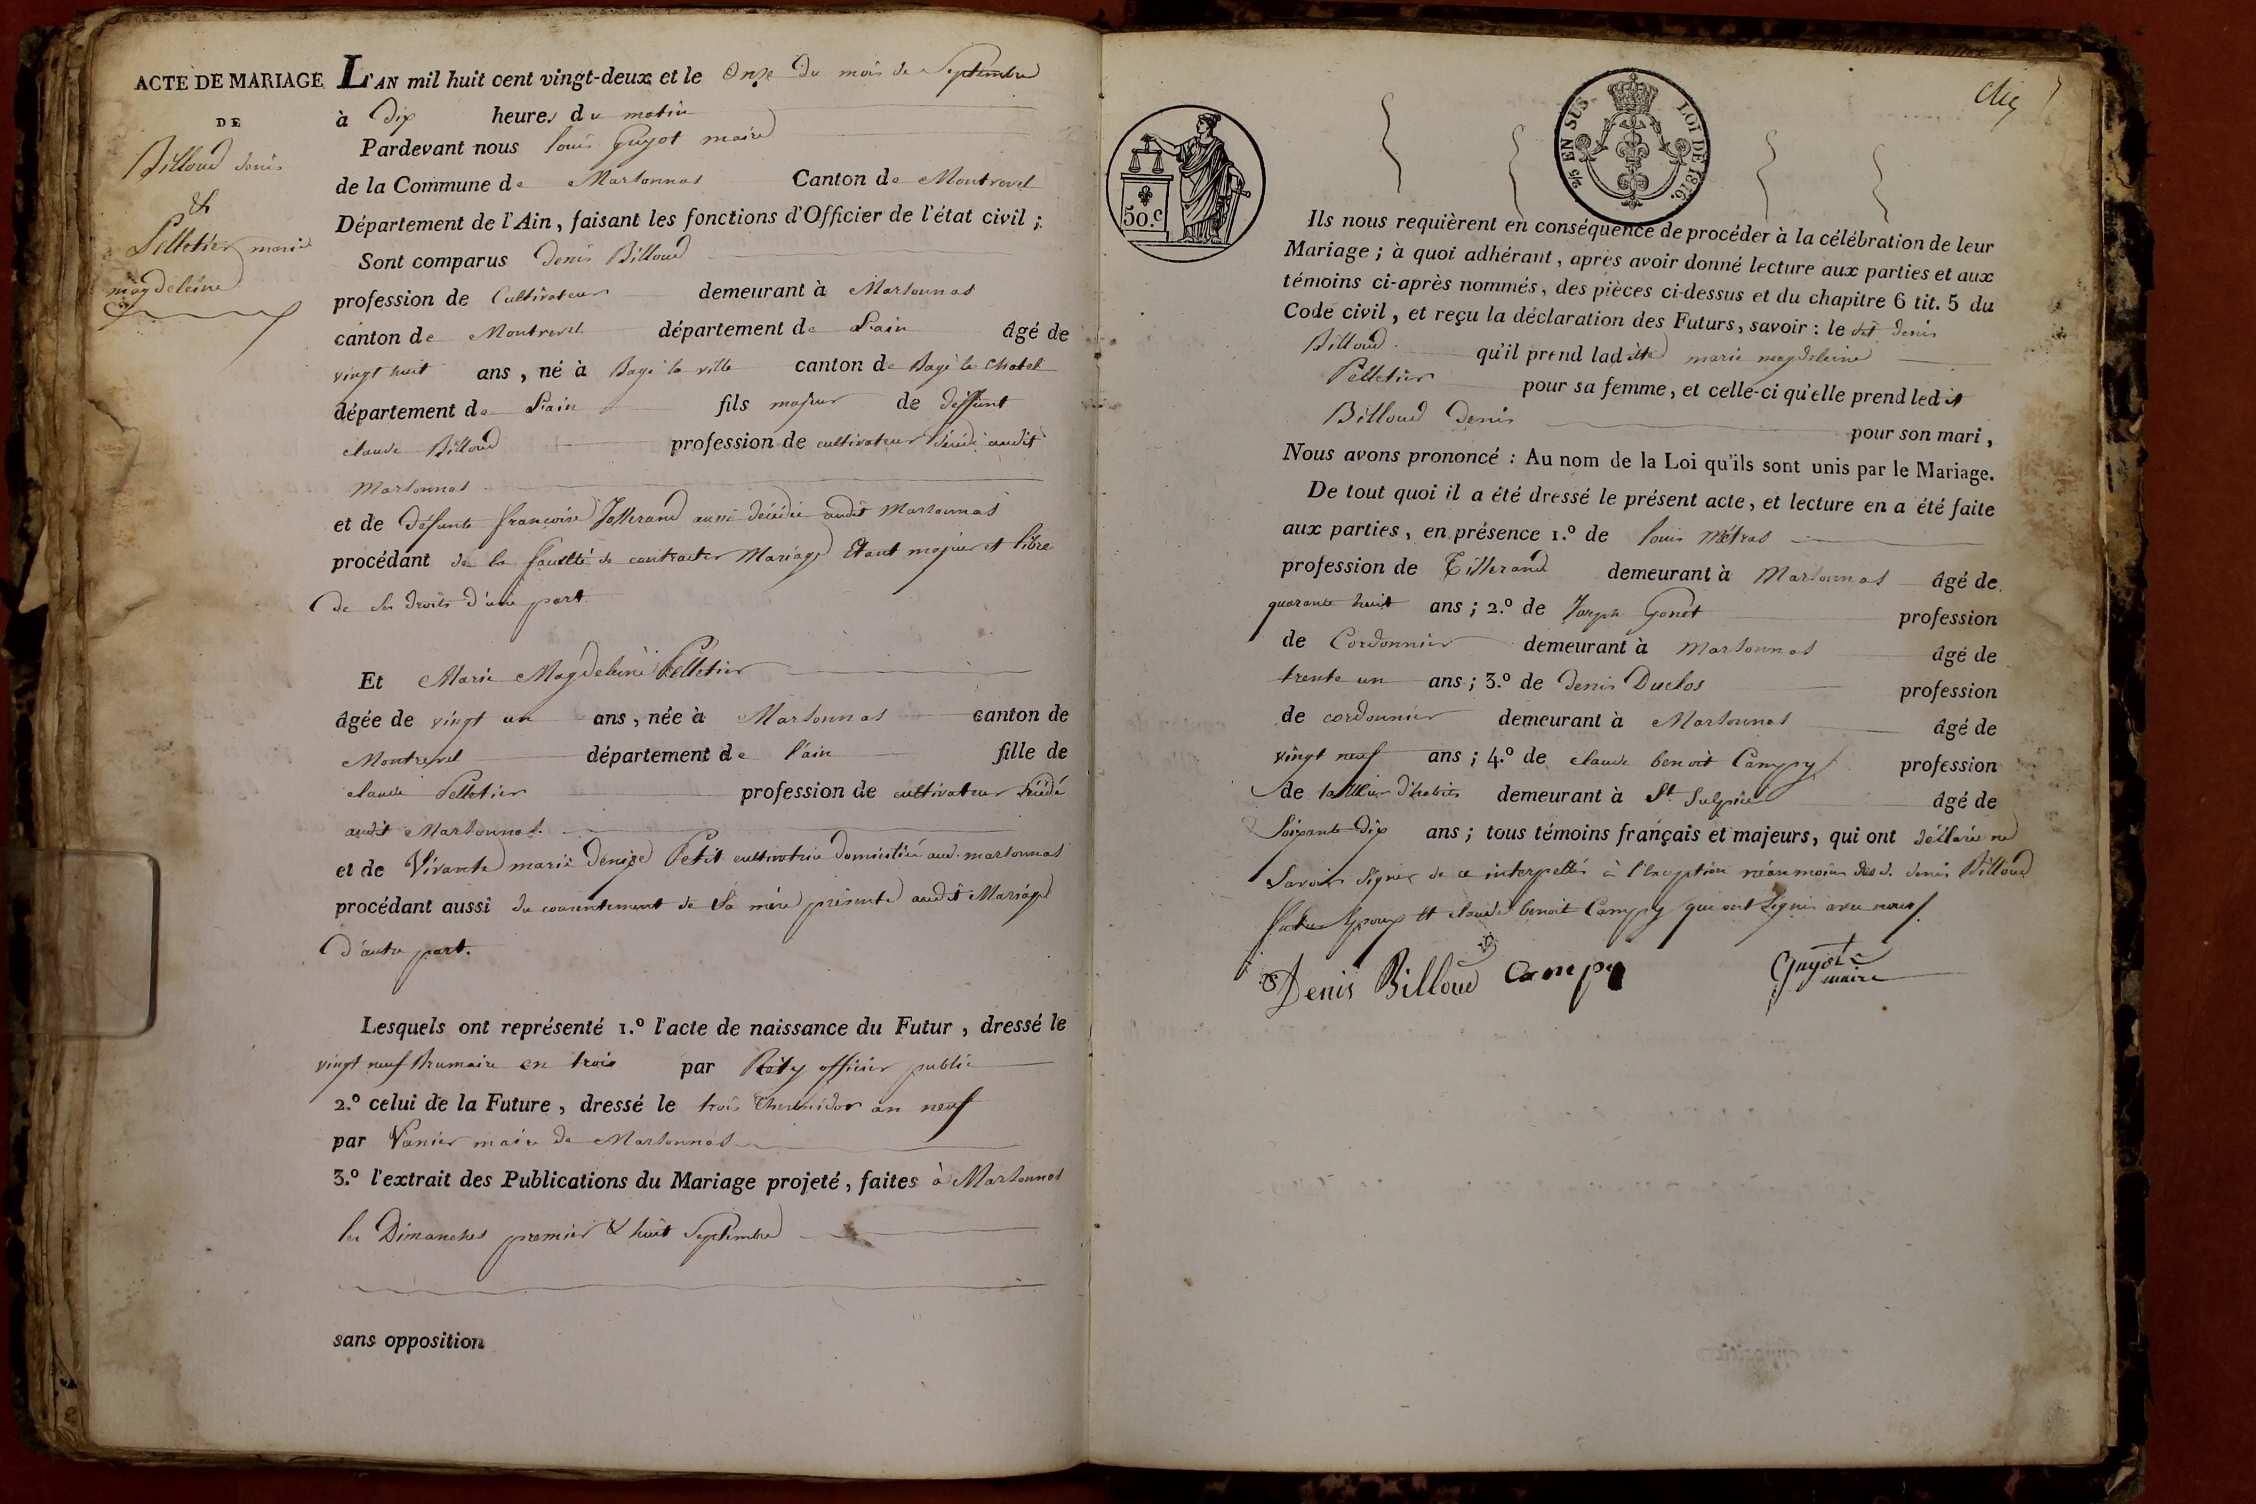 ACTE DE MARIAGE
DE
Billoud denis
&
Pelletier marie
magdeleine
L'AN mil huit cent vingt-deux et le onze du mois de Septembre
à Dix heures du matin
Pardevant nous louis Guyot maire
de la Commune de Marsonnas Canton de Montrevel
Département de l'Ain, faisant les fonctions d'Officier de l'état civil ;
Sont comparus denis Billoud
profession de Cultivateur demeurant à Marsonnas
canton de Montrevel département de L'ain âgé de
vingt huit ans, né à Bagé la ville canton de Bagé le Chatel
département de L'ain fils majeur de deffunt
claude Billoud profession de cultivateur décédé audit
Marsonnas
et de défunte francoise Josserand aussi décédée audit Marsonnas
procédant de la faculté de contracter Mariage Etant majeur et libre
de ses droits d'une part
Et Marie Magdeleine Pelletier
âgée de vingt un ans, née à Marsonnas canton de
Montrevel département de l'ain fille de
claude Pelletier profession de cultivateur décédé
audit Marsonnas
et de Vivante marie denise Petit cultivatrice domiciliée aud. marsonnas
procédant aussi du consentement de Sa mère présente audit Mariage
d'autre part.
Lesquels ont représenté 1.º l'acte de naissance du Futur, dressé le
vingt neuf Brumaire en trois par Raty officier public
2.º celui de la Future, dressé le trois thermidor an neuf
par Vanier maire de Marsonnas
3.º l'extrait des Publications du Mariage projeté, faites à Marsonnas
les Dimanches premier & huit Septembre
sans opposition
50.c
2/5 EN SUS. LOI DE 1816.
Ils nous requièrent en conséquence de procéder à la célébration de leur
Mariage ; à quoi adhérant, après avoir donné lecture aux parties et aux
témoins ci-après nommés, des pièces ci-dessus et du chapitre 6 tit. 5 du
Code civil, et reçu la déclaration des Futurs, savoir : le dit denis
Billoud qu'il prend ladite marie magdeleine
Pelletier pour sa femme, et celle-ci qu'elle prend ledit
Billoud Denis pour son mari,
Nous avons prononcé : Au nom de la Loi qu'ils sont unis par le Mariage.
De tout quoi il a été dressé le présent acte, et lecture en a été faite
aux parties, en présence 1.º de louis Métras
profession de Tisserand demeurant à Marsonnas âgé de
quarante huit ans ; 2.º de Joseph Gonet profession
de Cordonnier demeurant à Marsonnas âgé de
trente un ans ; 3.º de denis Duclos profession
de cordonnier demeurant à Marsonnas âgé de
vingt neuf ans ; 4.º de claude benoit Campy profession
de tailleur d'habits demeurant à St Sulpice âgé de
Soixante Dix ans ; tous témoins français et majeurs, qui ont déclaré ne
Savoir Signer de ce interpellés à l'exception néanmoins des d. denis Billoud
futur Epoux et claude benoit Campy qui ont Signés avec nous
Denis Billoud Campy Guyot
maire